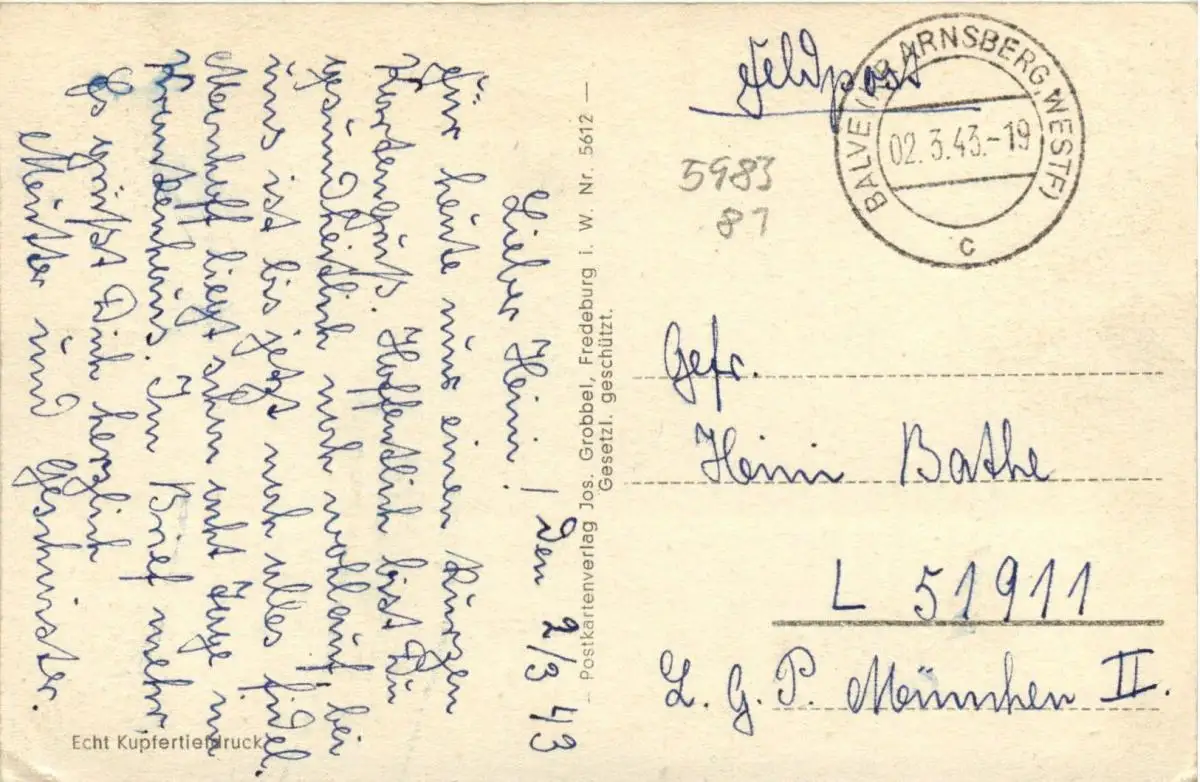 Feldpost
BALVE (KR ARNSBERG, WESTF)
02.3.43.-19
c
5983
81
Gefr.
Heini Bathe
L 51911
L. G. P. München II.
Postkartenverlag Jos. Grobbel, Fredeburg i. W. Nr. 5612
Gesetzl. geschützt.
Den 2/3 43
Lieber Heini!
Für heute nur einen kurzen
Kartengruß. Hoffentlich bist Du
gesundheitlich noch wohlauf, bei
uns ist bis jetzt noch alles fidel.
liegt schon acht Tage im
Krankenhaus. Im Brief mehr
Es grüßt Dich herzlich
Mutter und Geschwister.
Echt Kupfertiefdruck